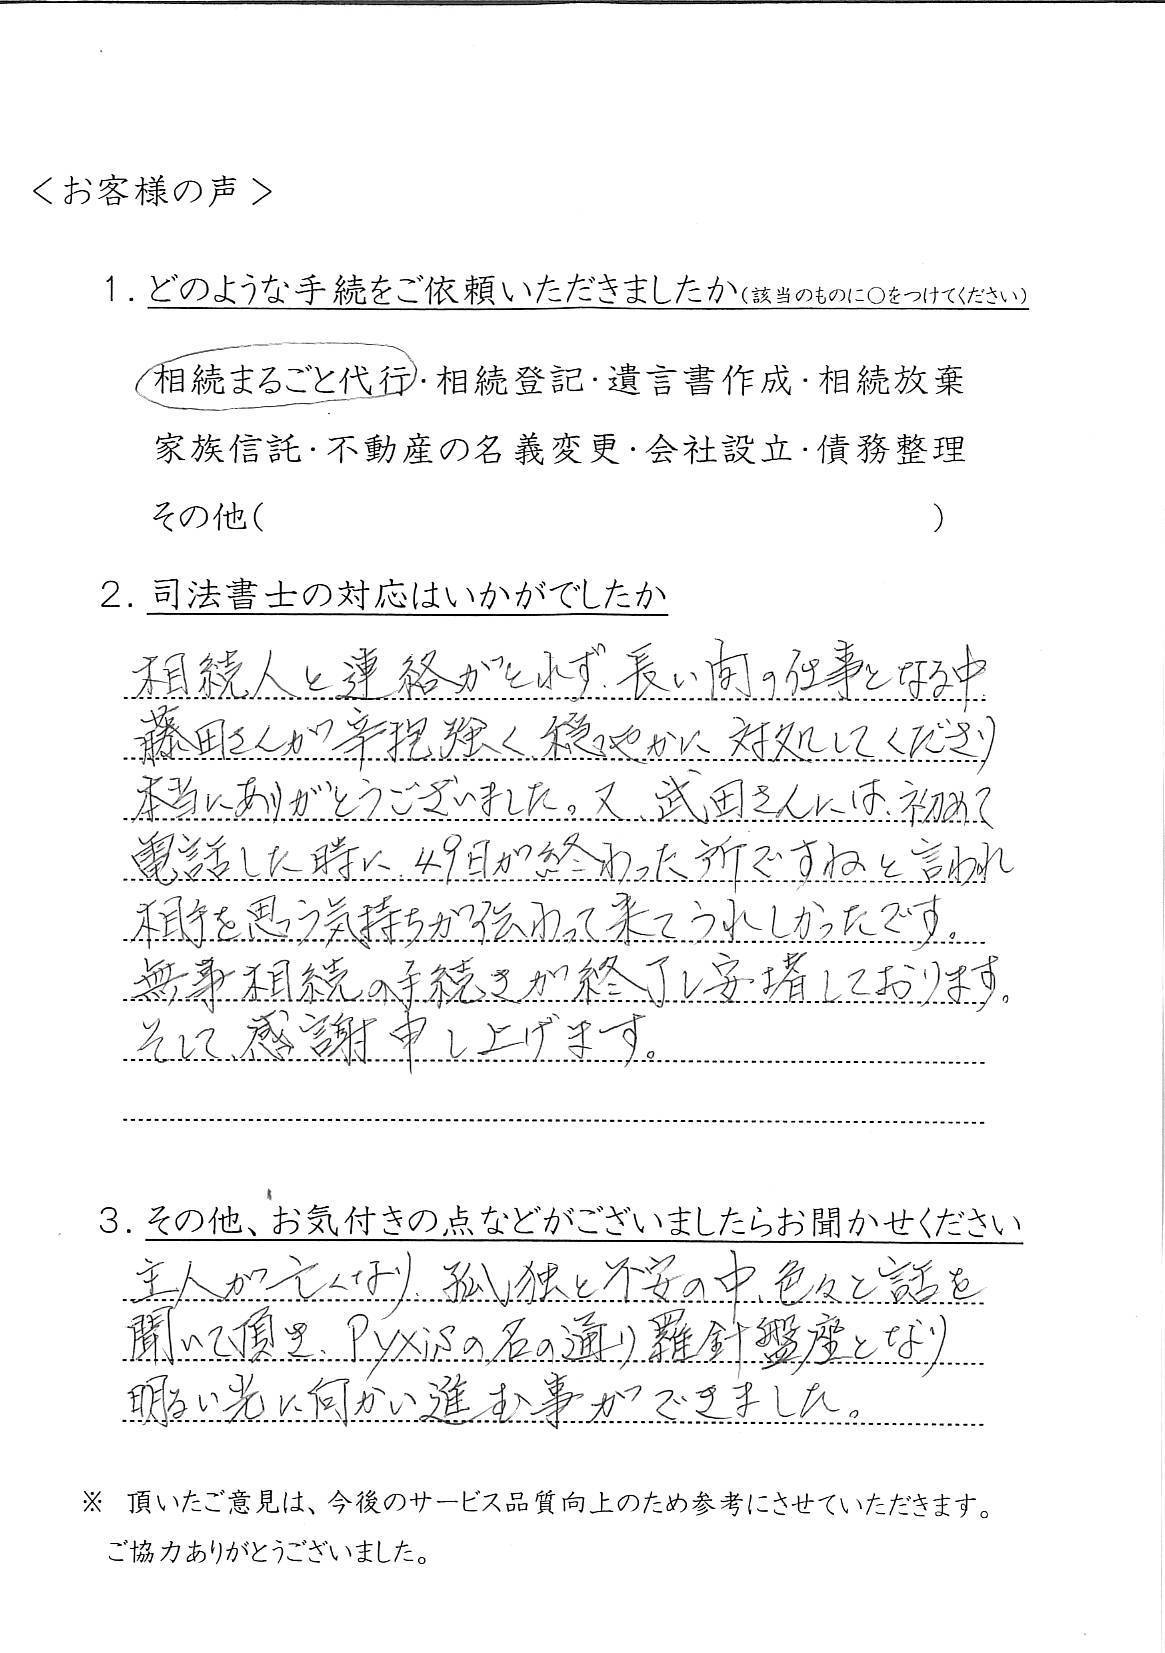 ＜お客様の声＞
1. どのような手続をご依頼いただきましたか(該当のものに〇をつけてください)
相続まるごと代行・相続登記・遺言書作成・相続放棄
家族信託・不動産の名義変更・会社設立・債務整理
その他(　　　　)
2. 司法書士の対応はいかがでしたか
相続人と連絡がとれず、長い間の仕事となる中、
藤田さんが辛抱強く穏やかに対処してくださり
本当にありがとうございました。又、武田さんには、初めて
電話した時に、49日が終わった所ですねと言われ
相手を思う気持ちが伝わって来てうれしかったです。
無事相続の手続きが終了し安堵しております。
そして、感謝申し上げます。
3. その他、お気付きの点などがございましたらお聞かせください
主人が亡くなり、孤独と不安の中、色々と話を
聞いて頂き、Pyxisの名の通り羅針盤座となり
明るい光に向かい進む事ができました。
※ 頂いたご意見は、今後のサービス品質向上のため参考にさせていただきます。
ご協力ありがとうございました。